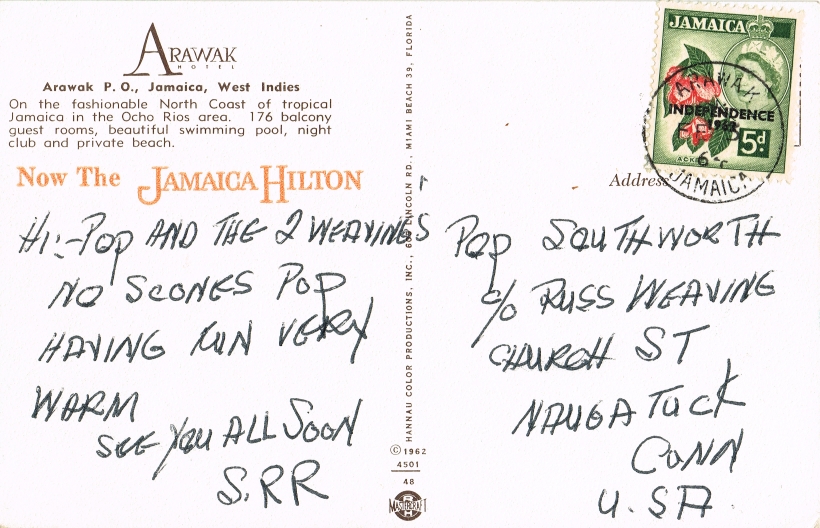 ARAWAK
HOTEL
Arawak P.O., Jamaica, West Indies
On the fashionable North Coast of tropical
Jamaica in the Ocho Rios area. 176 balcony
guest rooms, beautiful swimming pool, night
club and private beach.
Now The JAMAICA HILTON
HI:-POP AND THE 2 WEAVINGS
NO SCONES POP
HAVING FUN VERY
WARM
SEE YOU ALL SOON
S.RR
HANNAU COLOR PRODUCTIONS, INC., LINCOLN RD., MIAMI BEACH 39, FLORIDA
© 1962
4501
48
MASTERCRAFT
JAMAICA
INDEPENDENCE
5d
ARAWAK
JAMAICA
Address
POP SOUTHWORTH
c/o RUSS WEAVING
CHURCH ST
NAUGATUCK
CONN
U.SA